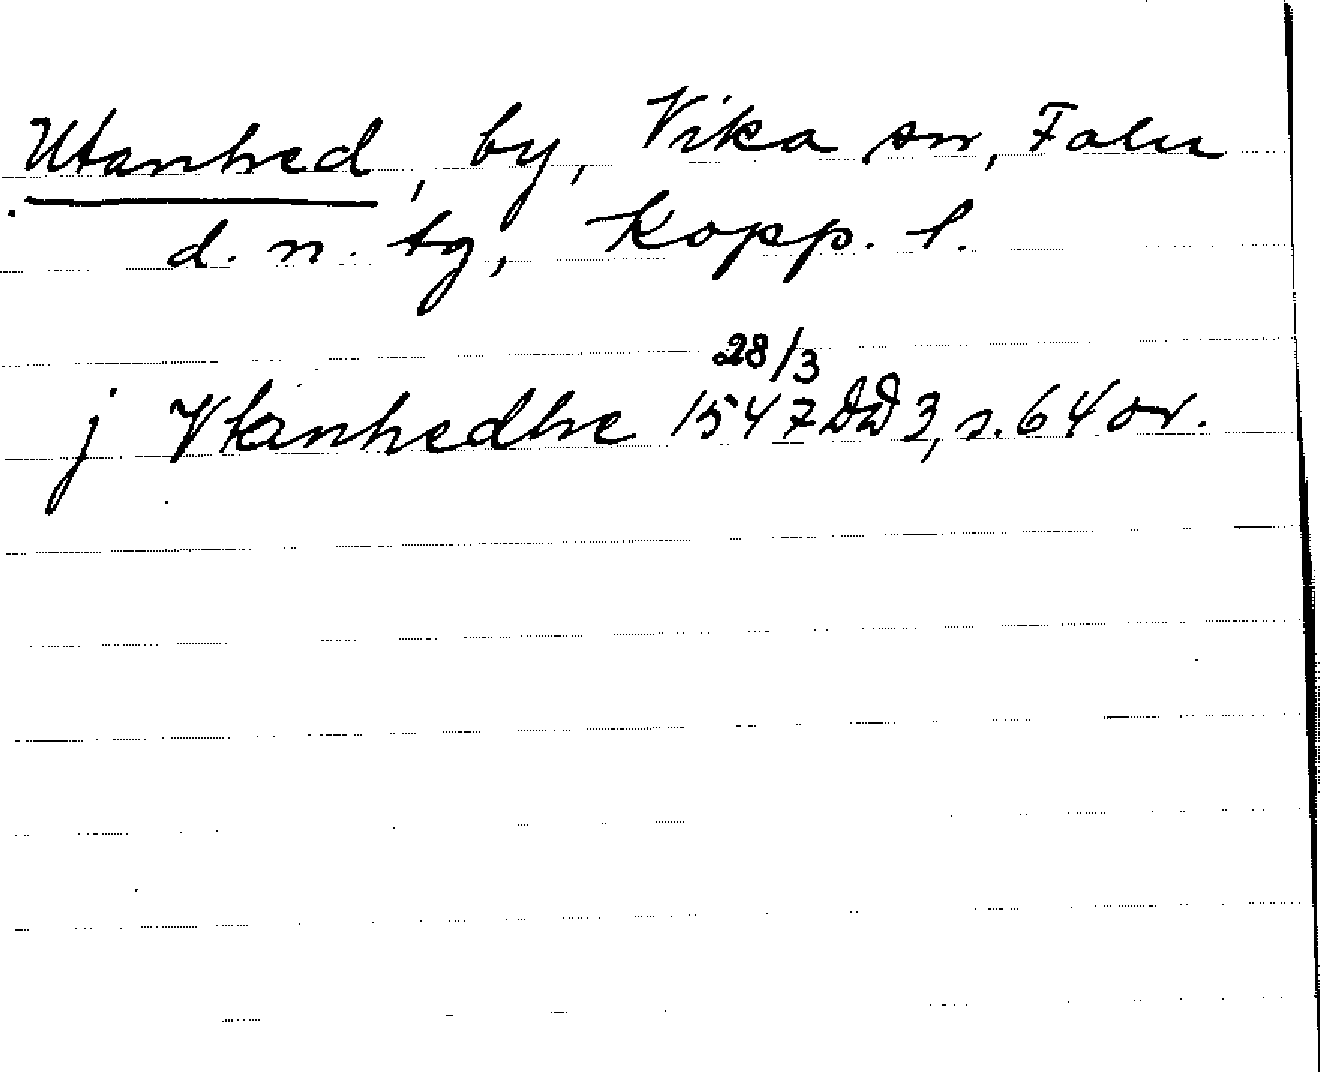 Utanhed, by, Vika sn, Falu
d. n. tg, Kopp. l.
28/3
j Vtanhedhe 1547 DD 3, s. 64 or.